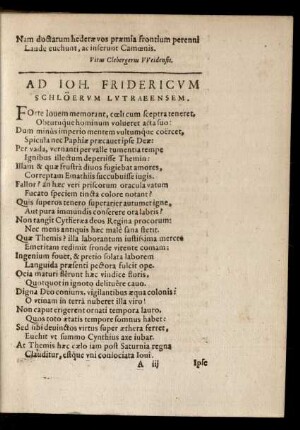 Nam doctarum hederæ vos præmia frontium perenni
Laude euehunt, ac inserunt Camœnis.
Vitus Clebergerus VVeidensis.
AD IOH. FRIDERICVM
SCHLÖERVM LVTRAEENSEM.
FOrte Iouem memorant, cœli cum sceptra teneret,
Obtutuque hominum volueret acta suo:
Dum minùs imperio mentem vultumque coërcet,
Spicula nec Paphiæ præcauet ipse Deæ:
Per vada, vernanti per valle tumentia tempe
Ignibus illectum deperiisse Themin:
Illam & quæ frustrà diuos fugiebat amores,
Correptam Emathiis succubuisse iugis.
Fallor? an hæc veri priscorum oracula vatum
Fucato speciem tincta colore notant?
Quis superos tenero superarier autumet igne,
Aut pura immundis conserere ora labris?
Non tangit Cythereæ deus Regina procorum:
Nec mens antiquis hæc malè sana stetit.
Quæ Themis? illa laborantum iustissima merces
Emeritam redimit fronde virente comam:
Ingenium fouet, & pretio solata laborem
Languida præsenti pectora fulcit ope.
Ocia maturi sternit hæc vindice floris,
Quotquot in ignoto delituêre cauo.
Digna Deo coniunx, vigilantibus æqua colonis!
O vtinam in terrâ nuberet illa viro!
Non caput erigerent ornati tempora lauro,
Quos toto ætatis tempore somnus habet:
Sed tibi deuinctos virtus super æthera ferret,
Euehit vt summo Cynthius axe iubar.
At Themis hæc cœlo iam post Saturnia regna
Clauditur, estque vni consociata Ioui.
A iij Ipse